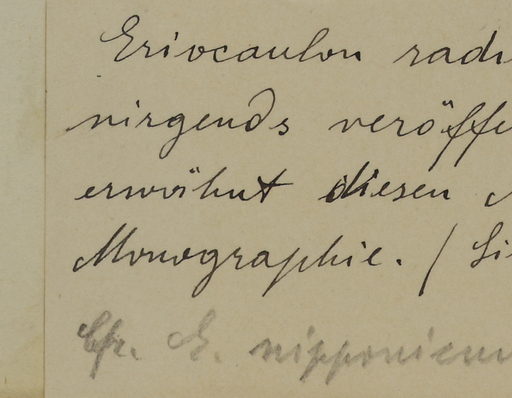 Eriocaulon radi
nirgends veröffe
erwähnt diesen
Monographie. / Si
Cfr. E. nipponicum